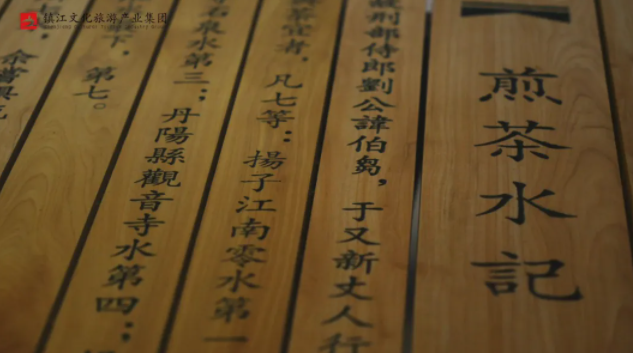 镇江文化旅游产业集团
煎茶水記
故刑部侍郎劉公諱伯芻，于又新丈人行
茶宜者，凡七等：揚子江南零水第一
石泉水第三；丹陽縣觀音寺水第四；
下，第七。
余嘗